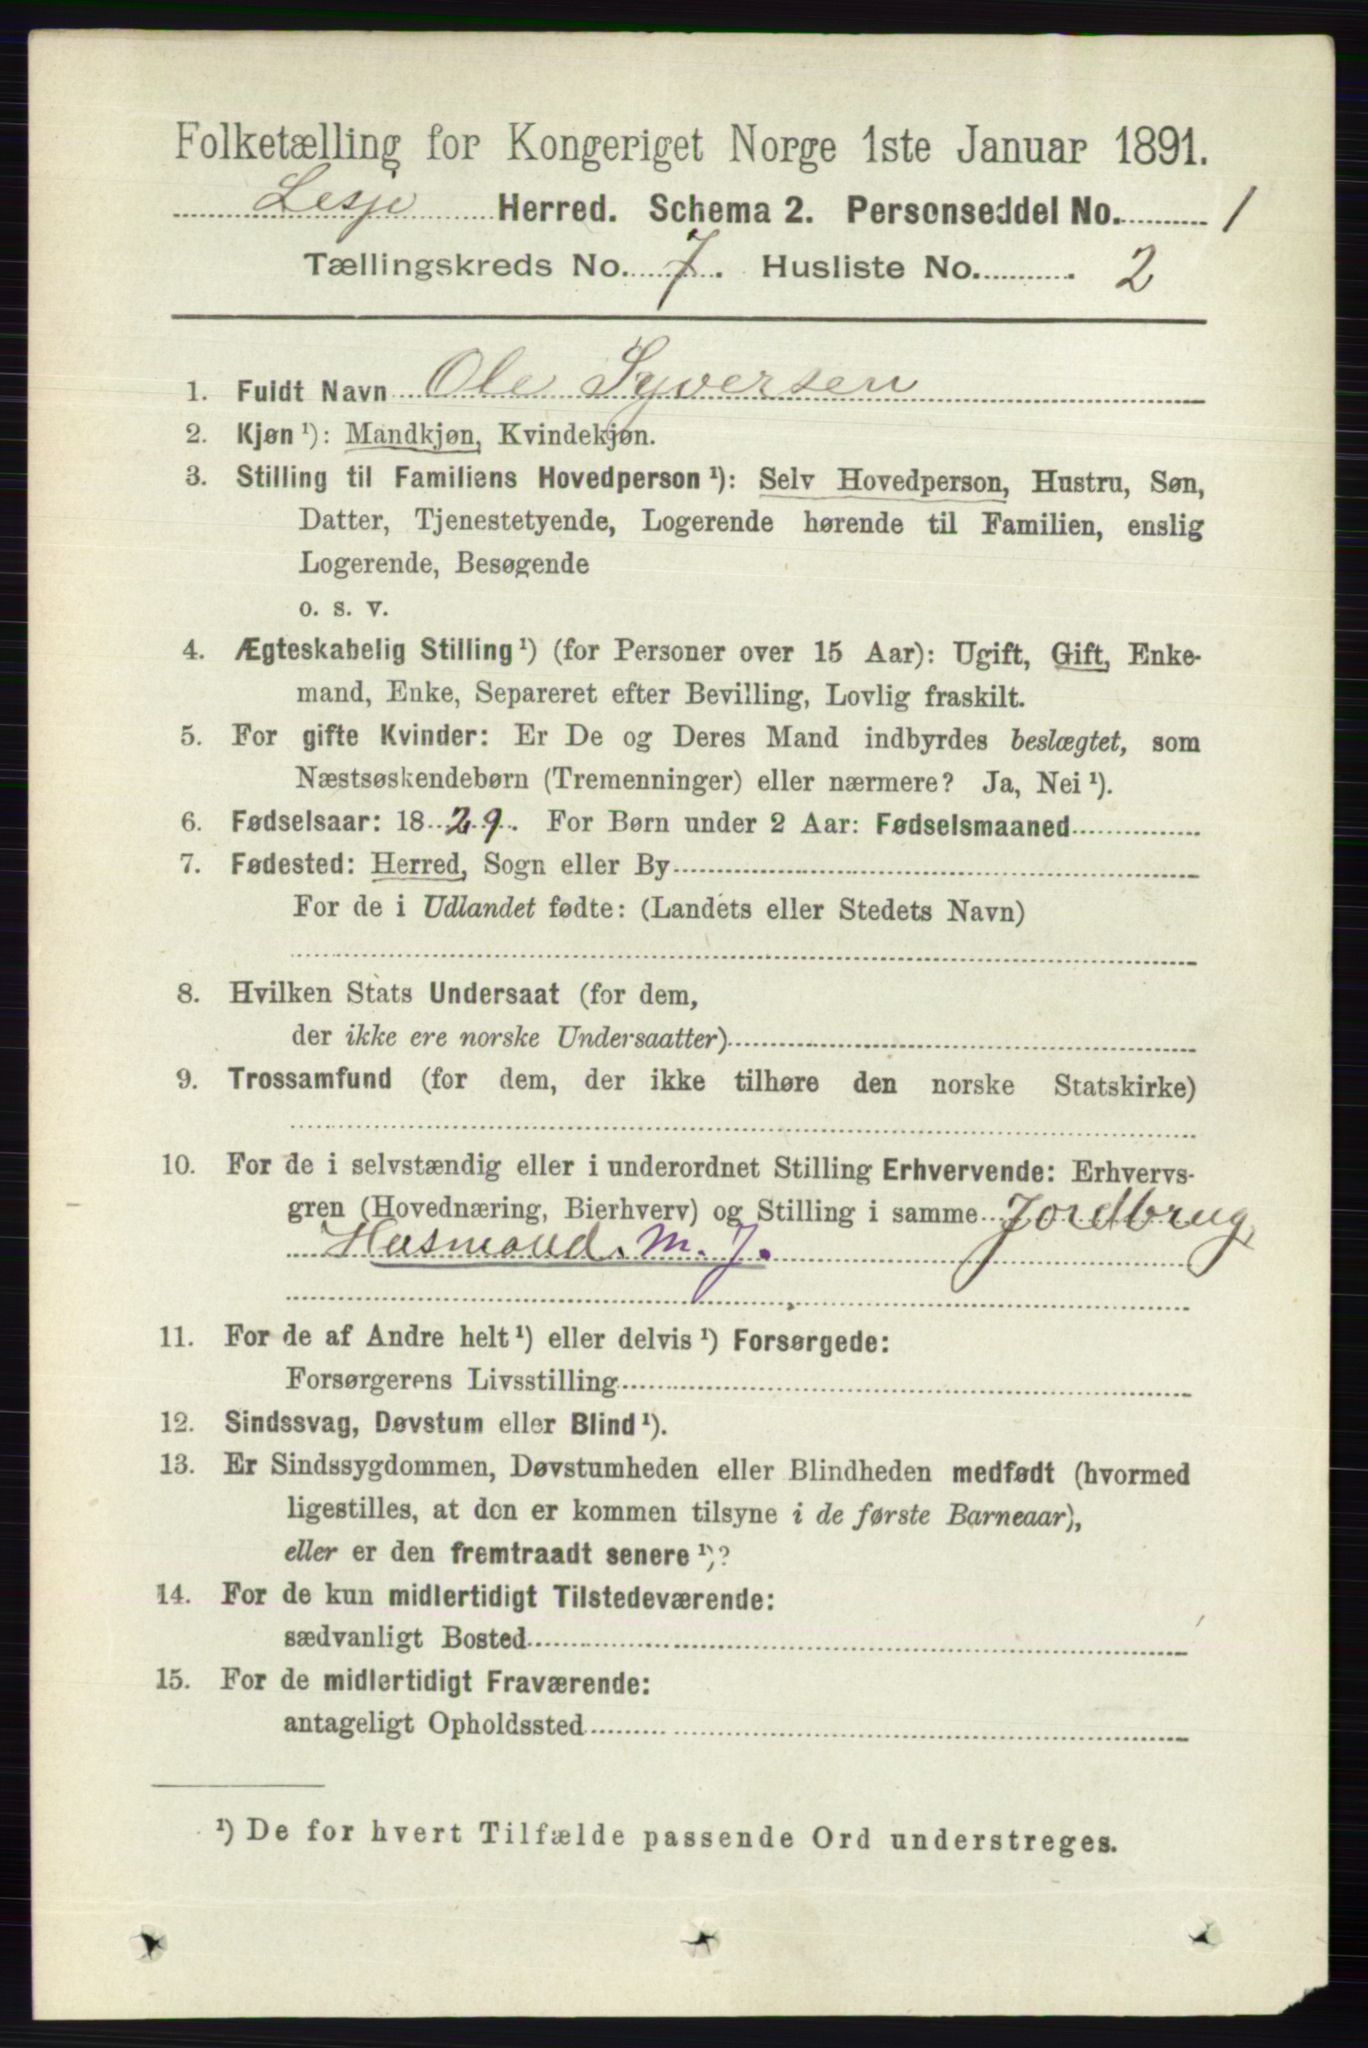 Folketælling for Kongeriget Norge 1ste Januar 1891.
Lesje Herred. Schema 2. Personseddel No. 1
Tællingskreds No. 7. Husliste No. 2
1. Fuldt Navn Ole Syversen
2. Kjøn ¹): Mandkjøn, Kvindekjøn.
3. Stilling til Familiens Hovedperson ¹): Selv Hovedperson, Hustru, Søn,
Datter, Tjenestetyende, Logerende hørende til Familien, enslig
Logerende, Besøgende
o. s. v.
4. Ægteskabelig Stilling ¹) (for Personer over 15 Aar): Ugift, Gift, Enke-
mand, Enke, Separeret efter Bevilling, Lovlig fraskilt.
5. For gifte Kvinder: Er De og Deres Mand indbyrdes beslægtet, som
Næstsøskendebørn (Tremenninger) eller nærmere? Ja, Nei ¹).
6. Fødselsaar: 1829. For Børn under 2 Aar: Fødselsmaaned
7. Fødested: Herred, Sogn eller By
For de i Udlandet fødte: (Landets eller Stedets Navn)
8. Hvilken Stats Undersaat (for dem,
der ikke ere norske Undersaatter)
9. Trossamfund (for dem, der ikke tilhøre den norske Statskirke)
10. For de i selvstændig eller i underordnet Stilling Erhvervende: Erhvervs-
gren (Hovednæring, Bierhverv) og Stilling i samme Jordbrug,
Husmand. m. J.
11. For de af Andre helt ¹) eller delvis ¹) Forsørgede:
Forsørgerens Livsstilling
12. Sindssvag, Døvstum eller Blind ¹).
13. Er Sindssygdommen, Døvstumheden eller Blindheden medfødt (hvormed
ligestilles, at den er kommen tilsyne i de første Barneaar),
eller er den fremtraadt senere ¹)?
14. For de kun midlertidigt Tilstedeværende:
sædvanligt Bosted
15. For de midlertidigt Fraværende:
antageligt Opholdssted
¹) De for hvert Tilfælde passende Ord understreges.